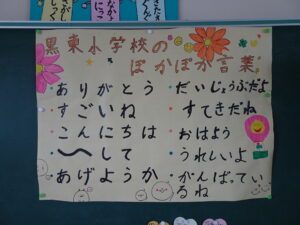 黒東小学校の
ぽかぽか言葉
・ありがとう
・すごいね
・こんにちは
・〜して
・あげようか
・だいじょうぶだよ
・すてきだね
・おはよう
・うれしいよ
・がんばっている
るね